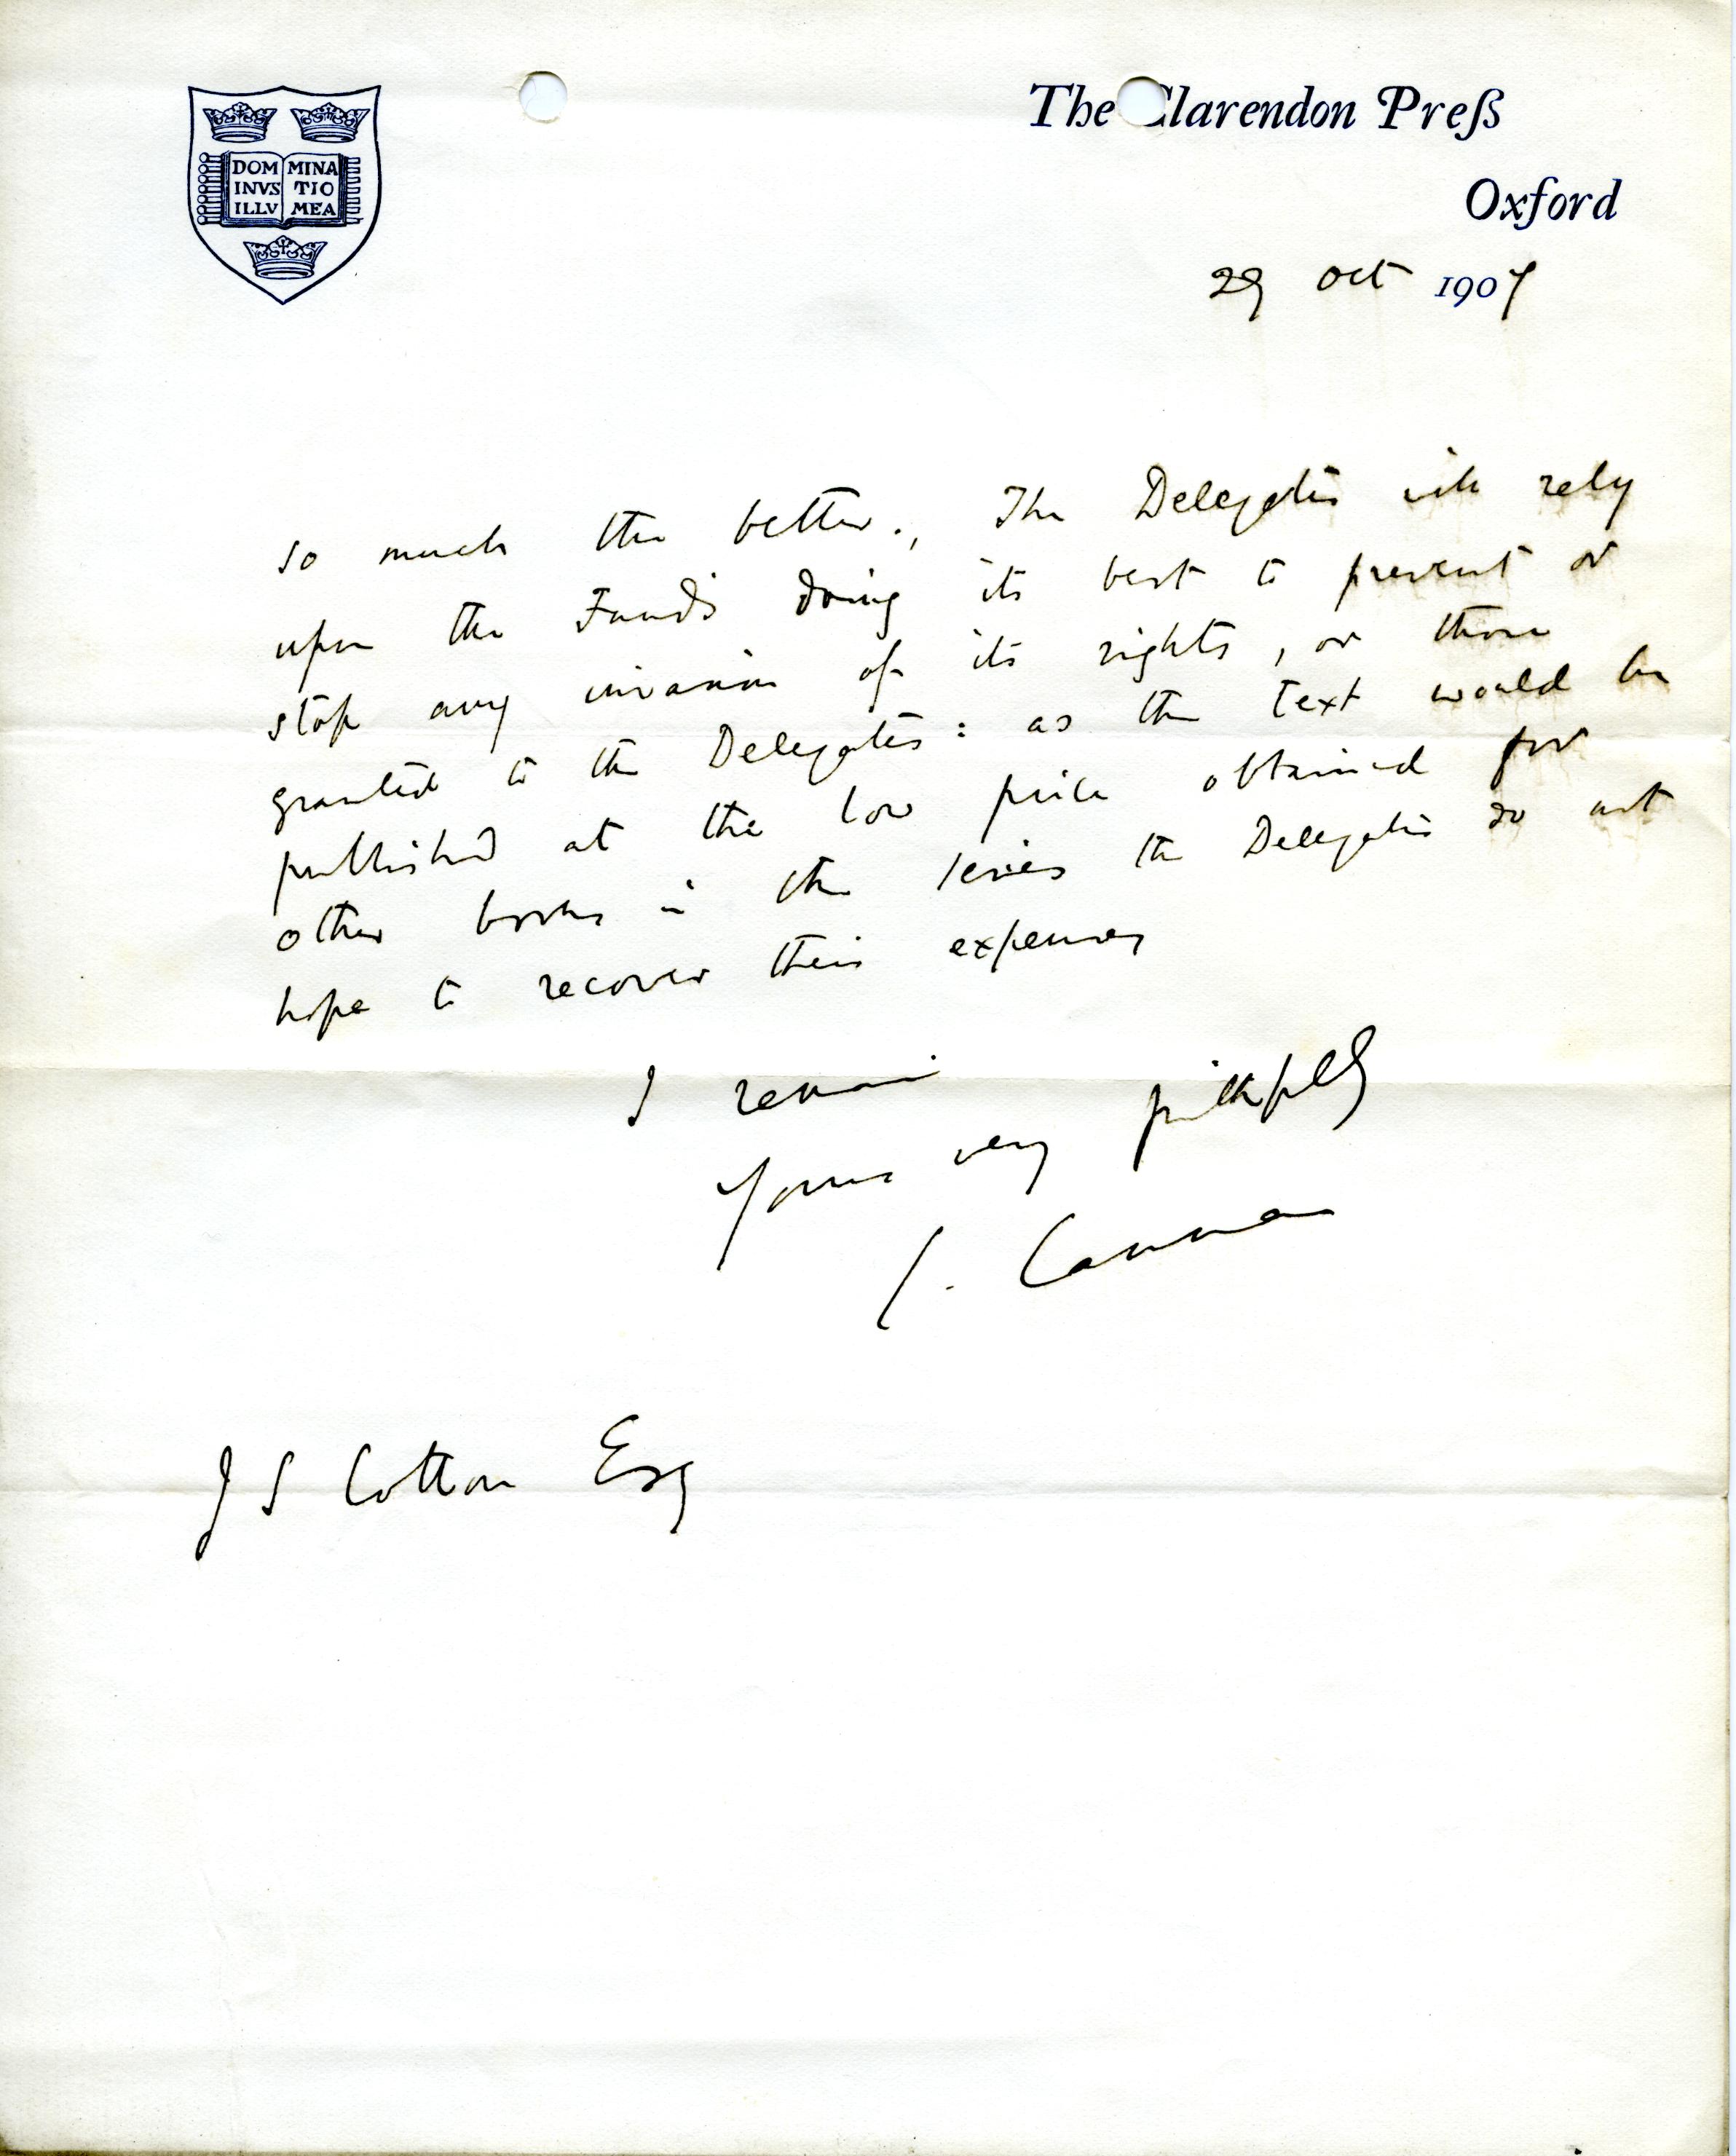 DOM MINA
INVS TIO
ILLV MEA
The Clarendon Preß
Oxford
29 Oct 1907
so much the better., The Delegates will rely
upon the Fund's doing its best to prevent or
stop any invasion of its rights, or those
granted to the Delegates: as the text would be
published at the low price obtained for
other books in the series the Delegates do not
hope to recover their expenses
I remain
Yours very faithfully
C. Cannan
J S Cotton Esq